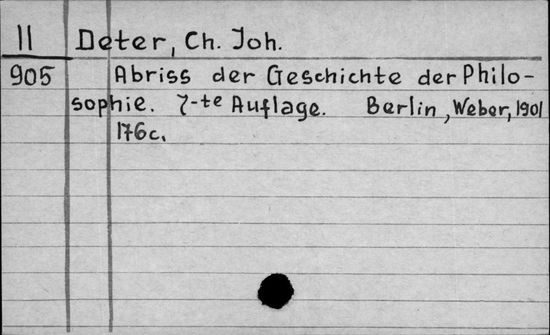 II Deter, Ch. Joh.
905 Abriss der Geschichte der Philo-
sophie. 7-te Auflage. Berlin, Weber, 1901
176c.